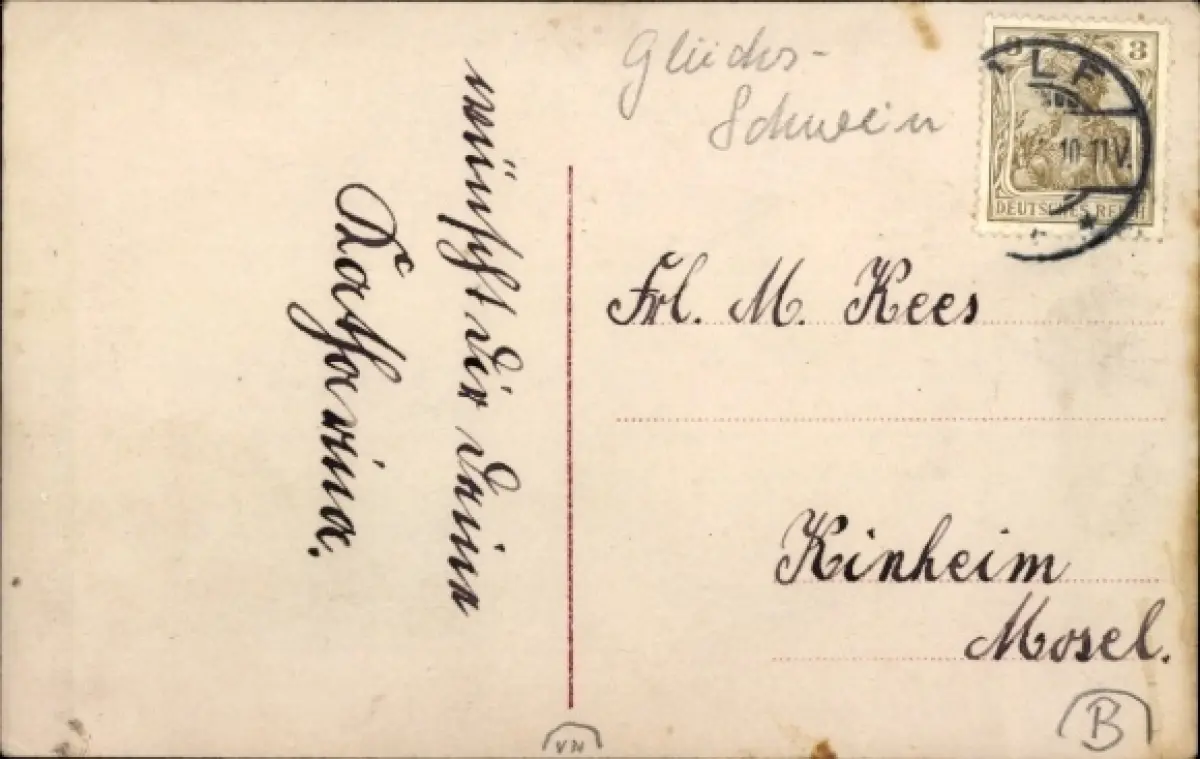 Glücks-
Schwein
3 3
LF
10-11V.
DEUTSCHES REICH
wünscht dir deine
Katharina.
Frl. M. Kees
Kinheim
Mosel.
VN
B